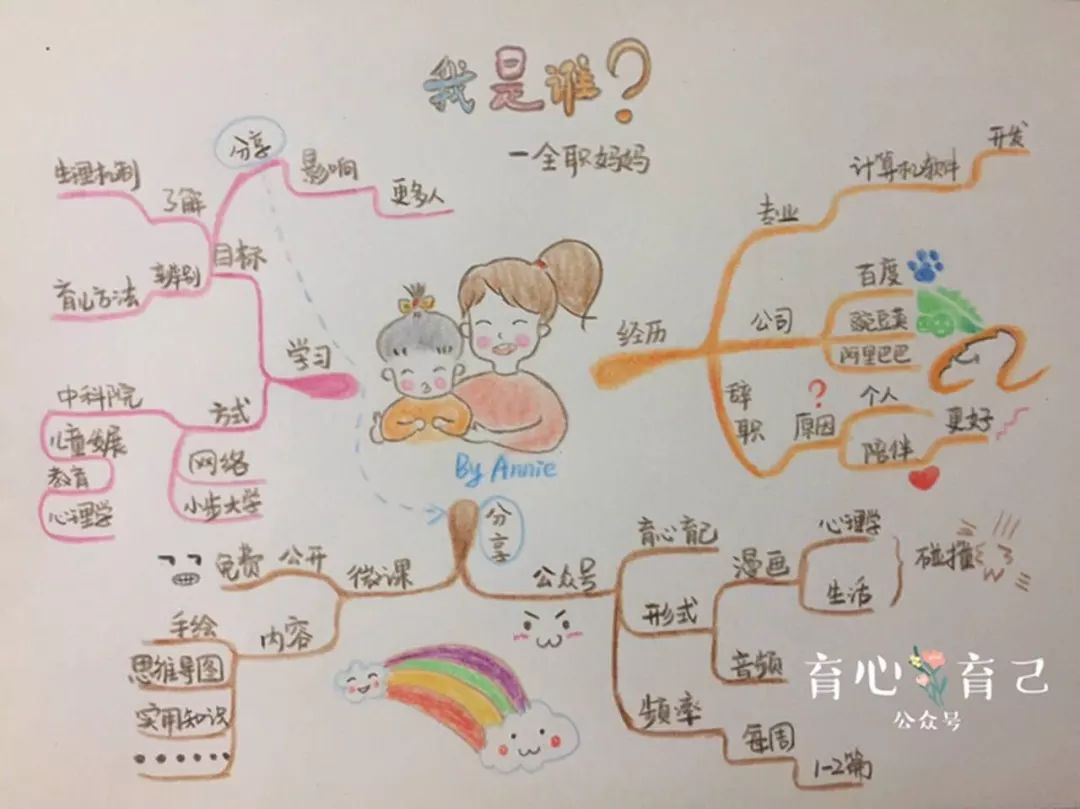 我是谁？
一全职妈妈
经历
专业
计算机软件
开发
公司
百度
豌豆荚
阿里巴巴
辞职
原因
?
个人
陪伴
更好
分享
公众号
育心育己
形式
漫画
心理学
生活
碰撞
音频
频率
每周
1-2篇
微课
公开
免费
内容
手绘
思维导图
实用知识
......
学习
目标
了解
生理机制
辨别
育儿方法
分享
影响
更多人
方式
中科院
儿童发展
教育
心理学
网络
小步大学
By Annie
育心育己
公众号